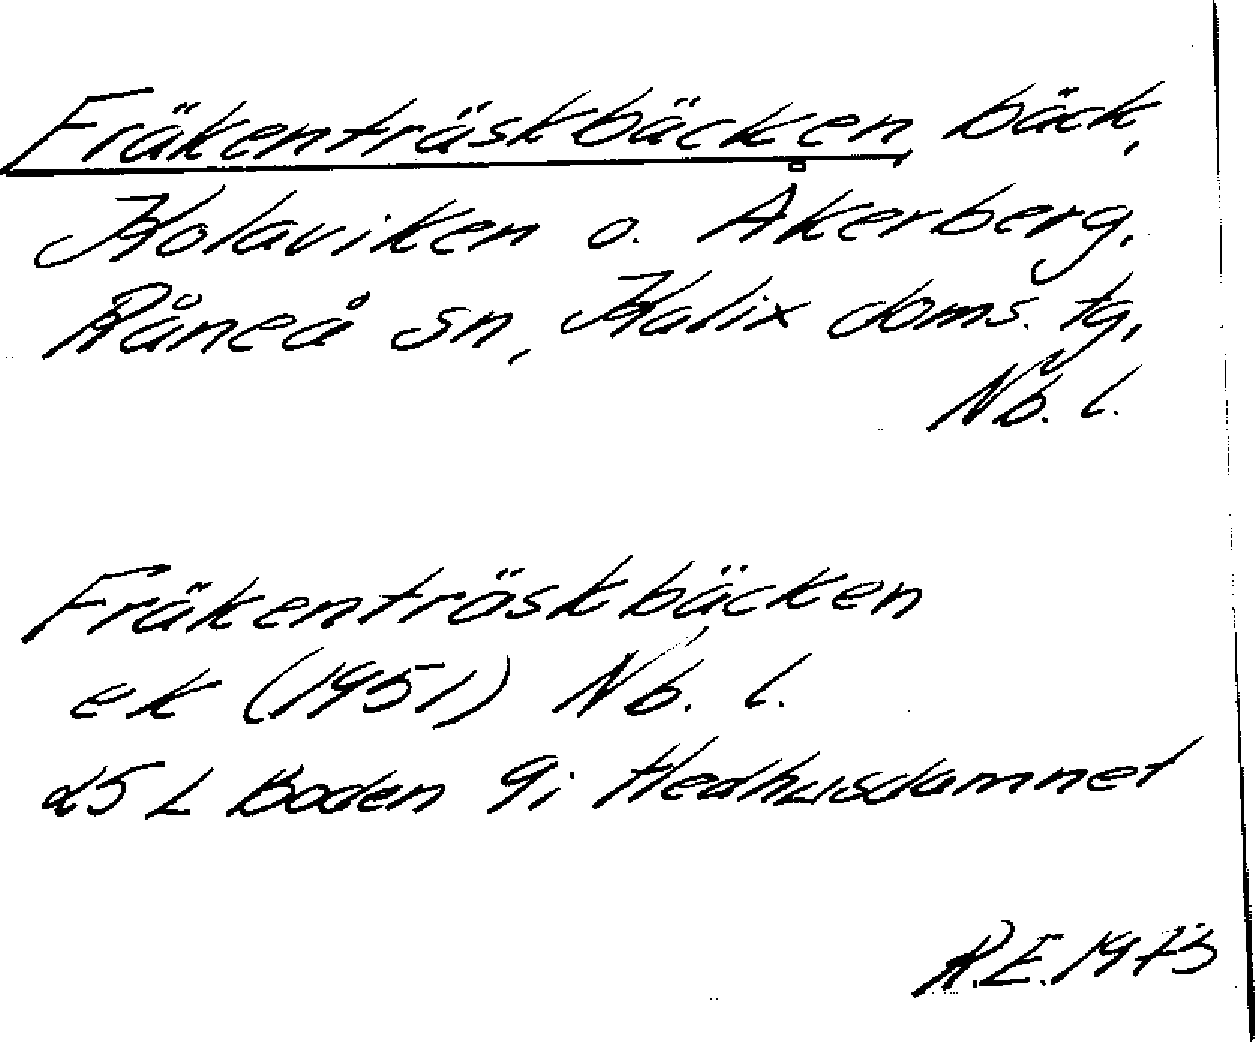 Fräkenträskbäcken, bäck,
Kolaviken o. Åkerberg,
Råneå sn, Kalix doms. tg,
Nb. l.
Fräkenträskbäcken
ek (1951) Nb. l.
25 L Boden 9i Hedhusdamnet
R.E. 1973